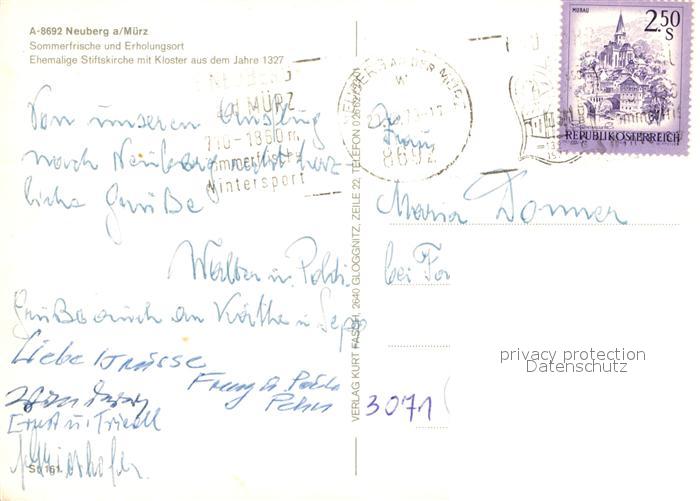 A-8692 Neuberg a/Mürz
Sommerfrische und Erholungsort
Ehemalige Stiftskirche mit Kloster aus dem Jahre 1327
MÜRZ
730-1850 m
Sommerfrische
Wintersport
Von unserem Ausflug
nach Neuberg recht herz-
liche Grüße
Walter u. Poldi.
Grüße auch an Käthe u. Sepp
Liebe Grüsse
Franz u. Poldi
Ernst u. Friedl
St 161
VERLAG KURT FASCH, 2640 GLOGGNITZ, ZEILE 22, TELEFON
NEUBERG AN DER MÜRZ
8692
MURAU
2.50
S
REPUBLIK ÖSTERREICH
Frau
Maria Donner
bei
3071
privacy protection
Datenschutz